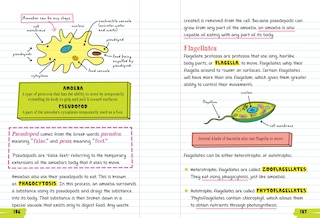 Amoebas can be any shape.
cell membrane
nucleus
contractile vacuole (excretes water and waste)
pseudopod
pseudopod
food being engulfed by pseudopod
food vacuole
cytoplasm
AMOEBA
A type of protozoa that has the ability to move by temporarily
extending its body to grip and pull it toward surfaces.
PSEUDOPOD
A part of the amoeba's cytoplasm temporarily used as a foot
Pseudopod comes from the Greek words pseudes
meaning "false" and pous meaning "feet."
Pseudopods are "false feet," referring to the temporary
extensions of the amoeba's body that it uses to move.
Amoebas also use their pseudopods to eat. This is known
as PHAGOCYTOSIS. In this process, an amoeba surrounds
a substance using its pseudopods and drags the substance
into its body. That substance is then broken down in a
special vacuole that exists only to digest food. Any waste
186
created is removed from the cell. Because pseudopods can
grow from any part of the amoeba, an amoeba is also
capable of eating with any part of its body.
Flagellates
Flagellate protozoa are protozoa that use long, hairlike
body parts, or FLAGELLA, to move. Flagellates whip their
flagella around to "swim" on surfaces. Certain flagellates
will have more than one flagellum, which gives them greater
ability to control their movements.
nucleus
flagellum
cell membrane
Several kinds of bacteria also use flagella to move.
Flagellates can be either heterotrophic or autotrophic.
Heterotrophic flagellates are called ZOOFLAGELLATES.
They eat using phagocytosis, just like amoebas.
Autotrophic flagellates are called PHYTOFLAGELLATES.
Phytoflagellates contain chlorophyll, which allows them
to obtain nutrients through photosynthesis.
187